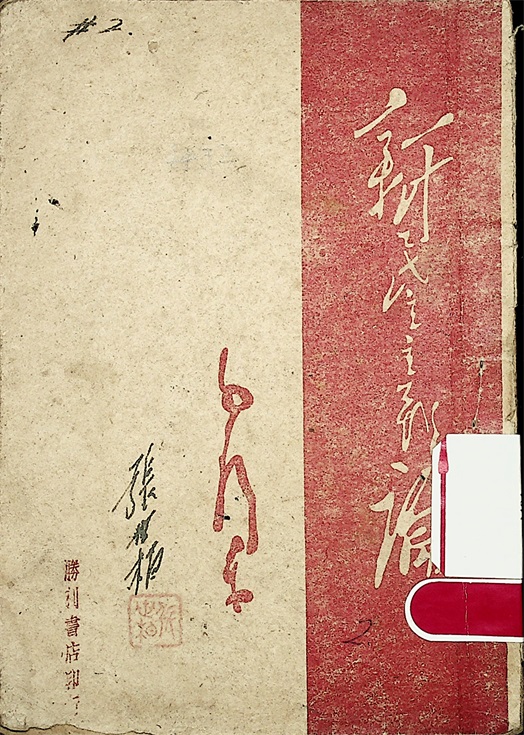 #2.
新民主主義論
毛澤東
張
勝利書店印行
2